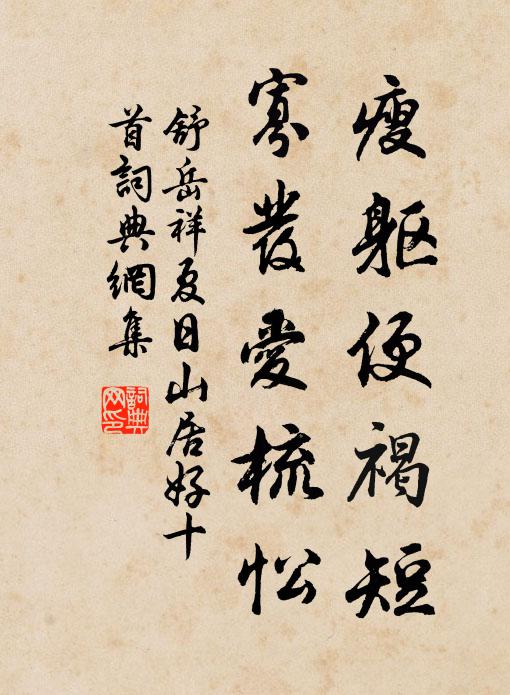 瘦躯便褐短
寡发爱梳忪
舒岳祥夏日山居好十
首詞典網集
詞典网印